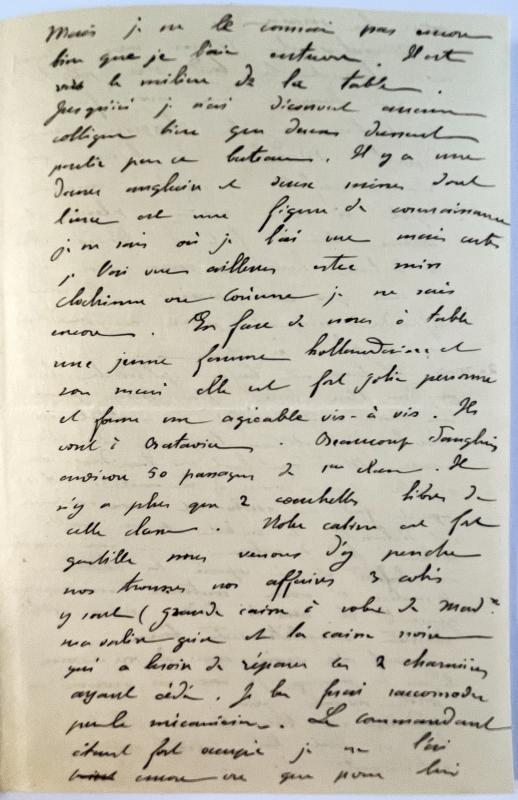 Mais je ne le connais pas encore
bien que je l'aie entrevu. Il est
vers le milieu de la table.
Jusqu'ici je n'ai découvert aucun
collègue bien que deux dussent
partir par ce bateau. Il y a une
dame anglaise et deux misses dont
l'une est une figure de connaissance
je ne sais où je l'ai vue mais certes
je l'ai vue ailleurs est ce miss
ou Corinne je ne sais
encore. En face de nous à table
une jeune femme hollandaise et
son mari elle est fort jolie personne
et forme un agréable vis-à vis. Ils
vont à Batavia. Beaucoup d'anglais
environ 50 passagers de 1ere classe. Il
n'y a plus que 2 couchettes libres de
cette classe. Notre cabine est fort
gentille nous venons d'y prendre
nos trousses nos affaires 3 colis
y sont (grande caisse à robe de Mad.e
ma valise grise et la caisse noire
qui a besoin de réparer les 2 charnières
ayant cédé. Je la ferai raccomoder
par le mécanicien. Le commandant
étant fort occupé je ne l'ai
encore vu que pour lui